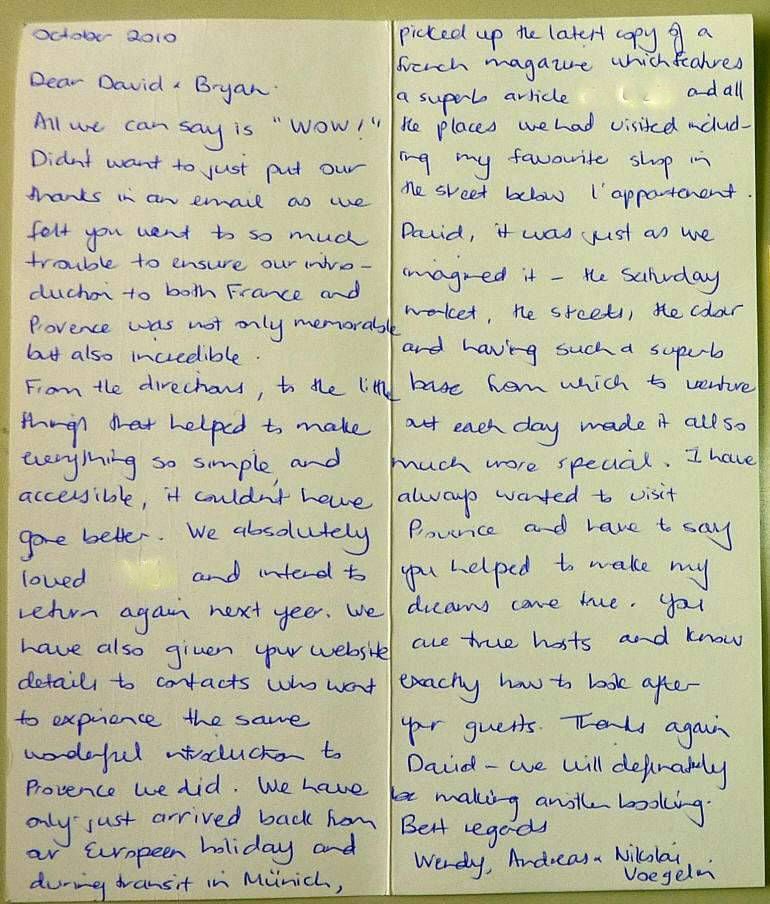 October 2010
Dear David & Bryan.
All we can say is "WOW!"
Didn't want to just put our
thanks in an email as we
felt you went to so much
trouble to ensure our intro-
duction to both France and
Provence was not only memorable
but also incredible.
From the directions, to the little
things that helped to make
everything so simple and
accessible, it couldn't have
gone better. We absolutely
loved and intend to
return again next year. We
have also given your website
details to contacts who want
to experience the same
wonderful introduction to
Provence we did. We have
only just arrived back from
our European holiday and
during transit in Münich,
picked up the latest copy of a
french magazine which features
a superb article and all
the places we had visited includ-
ing my favourite shop in
the street below l'appartement.
David, it was just as we
imagined it - the Saturday
market, the streets, the colour
and having such a superb
base from which to venture
out each day made it all so
much more special. I have
always wanted to visit
Provence and have to say
you helped to make my
dreams come true. You
are true hosts and know
exactly how to look after
your guests. Thanks again
David - we will definately
be making another booking.
Best regards
Wendy, Andreas & Nikolai
Voegelin